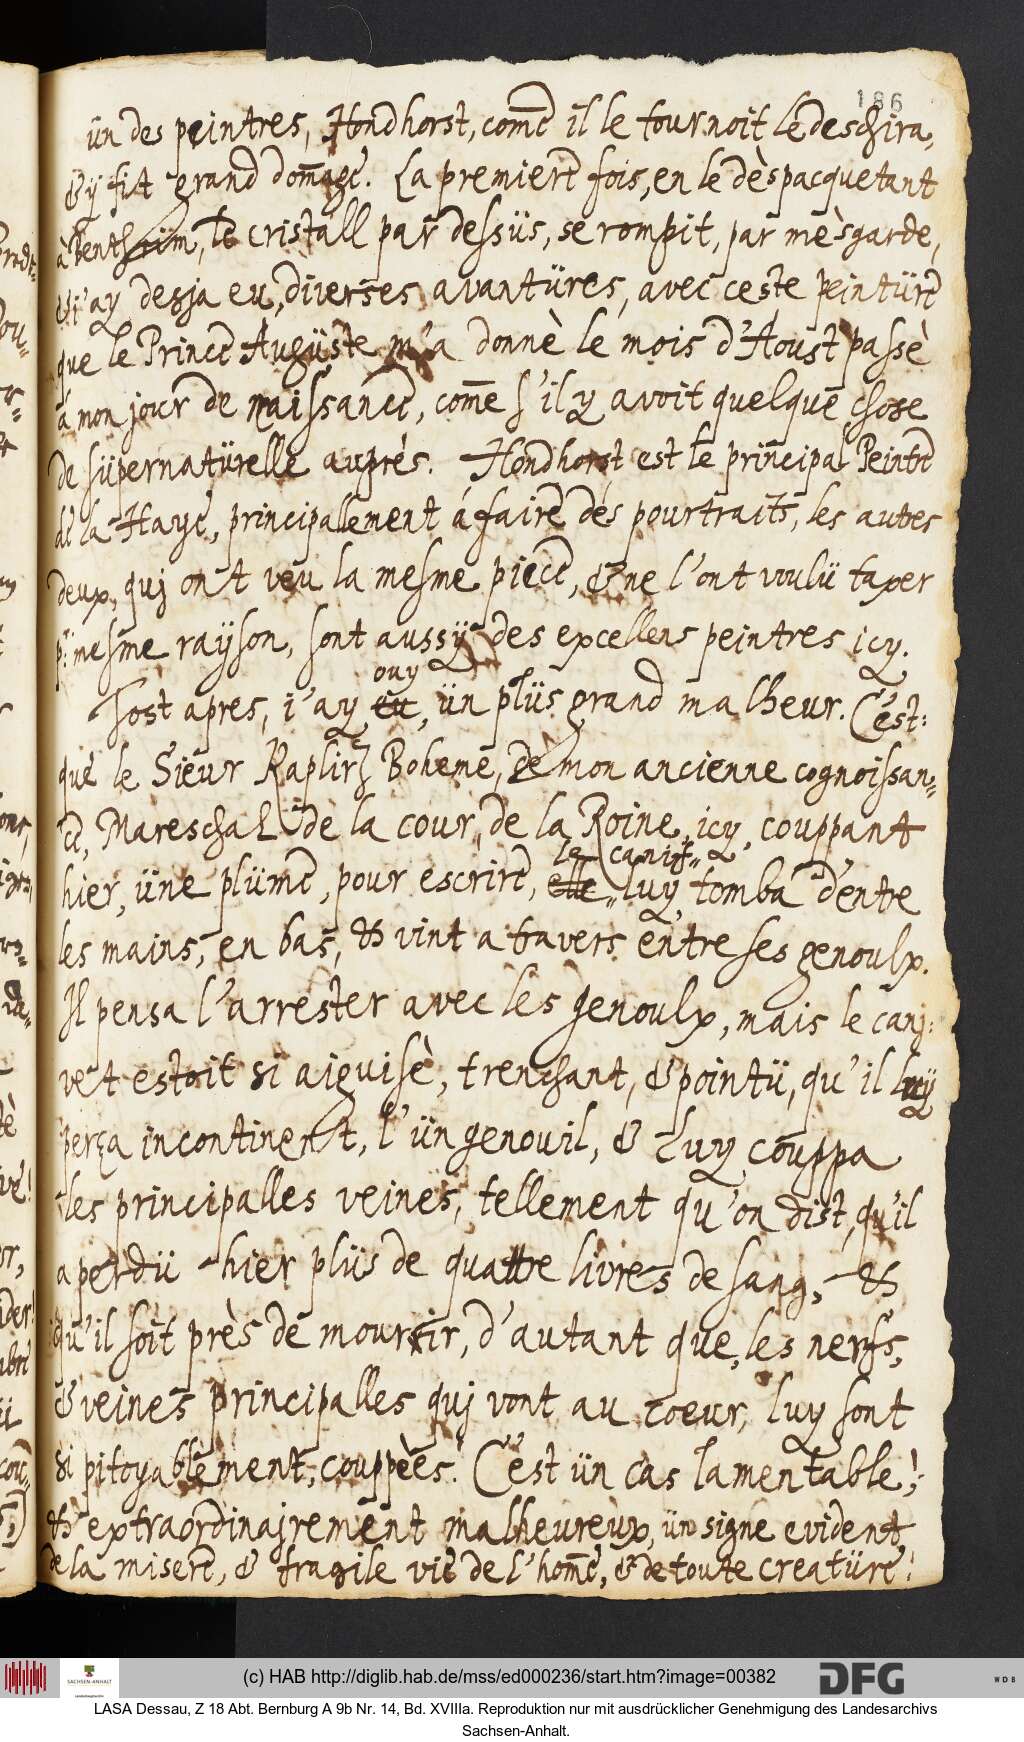 186
ün des peintres, Hondhorst, com̄e il le tournoit le deschira,
& ÿ fit grand dom̄age. La premiere fois, en le dèspacquetant
à Bentheim, le cristall par dessüs, se rompit, par mèsgarde,
& i'ay desja eu, diverses avantüres, avec ceste peintüre
que le Prince Augüste m'a donnè le mois d'Aoust passè
a mon jour de naissance, com̄e s'il y avoit quelque chose
de süpernatürelle auprés. Hondhorst est le principal Peintre
de la Haye, principalement á faire des pourtraits, les autres
deux, quj ont veu la mesme piece, & ne l'ont voulü taxer
p: mesme raÿson, sont aussÿ des excellens peintres icy.
Tost apres, i'ay eu, ün plüs grand malheur. C'est:
ouy
que le Sieur Raplirz Boheme, de mon ancienne cognoissan-
ce, Mareschal de la cour, de la Roine, icy, couppant
hier, üne plüme, pour escrire, elle luy tomba d'entre
le canif
les mains, en bas, & vint a travers entre ses genoulx.
Il pensa l'arrester avec les genoulx, mais le canj:
vet estoit si aiguisè, trenchant, & pointü, qu'il luÿ
perça incontinent, l'ün genouil, & luy couppa
les principalles veines, tellement qu'on dist, qu'il
a perdü hier plüs de quattre livres de sang, &
qu'il soit près de mourir, d'autant que, les nerfs,
& veines principalles quj vont au coeur, luy sont
si pitoyablement, couppèes. C'est ün cas lamentable!
& extraordinajrement malheureux, ün signe evident,
de la misere, & fragile vie de l'hom̄e, & de toute creatüre!
(c) HAB http://diglib.hab.de/mss/ed000236/start.htm?image=00382
SACHSEN-ANHALT
DFG
WDB
LASA Dessau, Z 18 Abt. Bernburg A 9b Nr. 14, Bd. XVIIIa. Reproduktion nur mit ausdrücklicher Genehmigung des Landesarchivs
Sachsen-Anhalt.